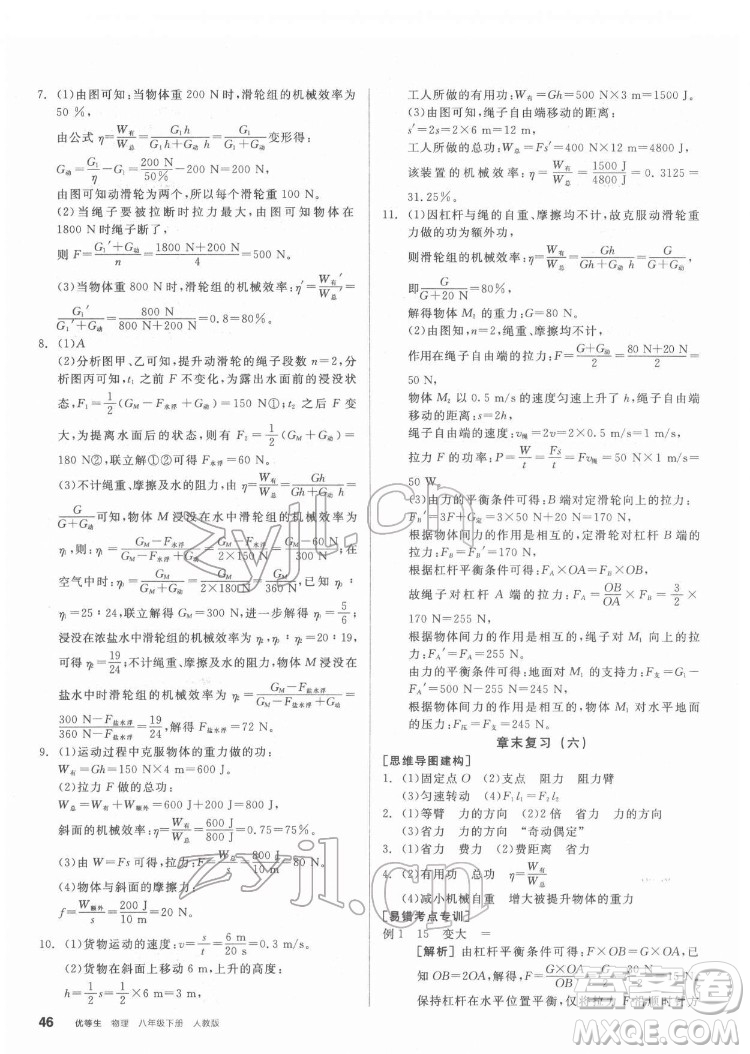 7. (1)由图可知:当物体重 200 N时,滑轮组的机械效率为
50 %,
由公式 η=W有/W总=G₁h/(G₁h+G动h)变形得:
G动=G₁/η−G₁=200 N/50%−200 N=200 N,
由图可知动滑轮为两个,所以一个滑轮重 100 N。
(2)当绳子要被拉断时拉力最大,由图可知物体在
1800 N时绳子断了,
则 F=(G₁′+G动)/n=(1800 N+200 N)/4=500 N。
(3)此时滑轮组的机械效率:η′=W有′/W总′=
G₁′/(G₁′+G动)=1800 N/(1800 N+200 N)=0.8=80%。
8. (1)A
(2)分析图甲、乙可知,提升动滑轮的绳子段数 n=2,分
析图丙可知,t₁之前 F 不变化,为露出水面前的浸没状
态,F₁=1/2(GM−F水浮+G动)=150 N①;t₂之后 F 变
大,为提离水面后的状态,则有 F₂=1/2(GM+G动)=
180 N②,联立①②,解得 F水浮=60 N。
(3)不计绳重、摩擦及水的阻力,由 η=W有/W总=Gh/(Gh+G动h)=
G/(G+G动)可知,物体 M 浸没在水中时滑轮组的机械效率为
η₁,则:η₁=(GM−F水浮)/2F₁=(GM−F水浮)/(2×150 N)=(GM−60 N)/300 N;在
空气中时:η₂=GM/2F₂=GM/(2×180 N)=GM/360 N,已知 η₂:
η₁=25∶24,联立解得 GM=300 N,进一步解得 η₂=5/6;
浸没在浓盐水中时滑轮组的机械效率为 η₂∶η₃=20∶19,
可得 η₃=19/24,不计绳重、摩擦及水的阻力,浸没在浓
盐水中时滑轮组的机械效率为 η₃=(GM−F盐水浮)/(GM−F盐水浮+G动)=
(300 N−F盐水浮)/(360 N−F盐水浮)=19/24,解得 F盐水浮=72 N。
9. (1)运动过程中克服物体的重力做的功:
W有=Gh=150 N×4 m=600 J。
(2)拉力 F 做的总功:
W总=W有+W额外=600 J+200 J=800 J,
斜面的机械效率 η=W有/W总=600 J/800 J=0.75=75%。
(3)由 W=Fs 可得,拉力:F=W总/s=800 J/10 m=80 N。
(4)物体与斜面的摩擦力,
f=W额外/s=200 J/10 m=20 N。
10. (1)货物运动的速度:v=s/t=6 m/20 s=0.3 m/s。
(2)货物沿水平方向移动 6 m,则上升高度:
h=1/2 s=1/2×6 m=3 m,
工人所做的有用功:W有=Gh=500 N×3 m=1500 J。
(3)由图可知,绳子自由端移动的距离:
s′=2s=2×6 m=12 m,
工人所做的总功:W总=Fs′=400 N×12 m=4800 J,
该装置的机械效率 η=W有/W总=1500 J/4800 J=0.3125=
31.25%。
11. (1)因杠杆与绳的自重、摩擦均不计,故克服动滑轮重
力做的功为额外功,
则滑轮组的机械效率:η=W有/W总=Gh/(Gh+G动h)=G/(G+G动),
即G/(G+20 N)=80%,
解得物体 M₂ 的重力:G=80 N。
(2)由图知,n=2,绳重、摩擦不计,
作用在绳子自由端的拉力:F=(G+G动)/2=(80 N+20 N)/2=
50 N,
物体 M₂ 以 0.5 m/s 的速度匀速上升了 h,则绳子自由端
移动的距离:s=2h,
绳子自由端的速度:v绳=2v=2×0.5 m/s=1 m/s,
拉力 F 的功率:P=W/t=Fs/t=Fv绳=50 N×1 m/s=
50 W。
(3)由力的平衡条件可得:B 端对定滑轮向上的拉力:
FB′=3F+G定=3×50 N+20 N=170 N,
根据物体间力的作用是相互的,定滑轮对杠杆 B 端的拉
力:FB=FB′=170 N,
根据杠杆平衡条件可得:FA×OA=FB×OB,
故绳子对杠杆 A 端的拉力:FA=OB/OA×FB=3/2×
170 N=255 N,
根据物体间力的作用是相互的,绳子对 M₁ 向上的拉
力:FA′=FA=255 N,
由力的平衡条件可得,地面对 M₁ 的支持力:F支=G₁−
根据物体间力的作用是相互的,物体 M₁ 对水平地面
章末复习(六)
[思维导图建构]
1. (1)固定点 O (2)支点 阻力 阻力臂
(3)匀速转动 (4)F₁l₁=F₂l₂
2. (1)等臂 力的方向 (2)2倍 省力 力的方向
(3)省力 力的方向 “奇动偶定”
3. (1)省力 费力 (2)费距离 省力
4. (2)有用功 总功 η=W有/W总
(4)减小机械自重 增大被提升物体的重力
[易错考点专训]
例 1 15 变大 =
[解析]由杠杆平衡条件可得:F×OB=G×OA,即:
46 优等生 物理 八年级下册 人教版
zyjl.cn
zyjl.cn